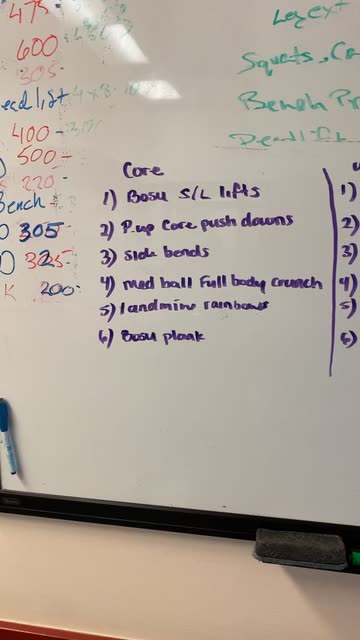 475
600
305-
Leg ext
Squats, Ca
Bench Pr
Deadlift
400-
500-
220-
Bench
305
325-
K 200-
Core
1) Bosu S/L lifts
2) P.up Core push downs
3) Side bends
4) med ball Full body crunch
5) landmine rainbows
6) Bosu plank
1)
2)
3)
4)
5)
6)